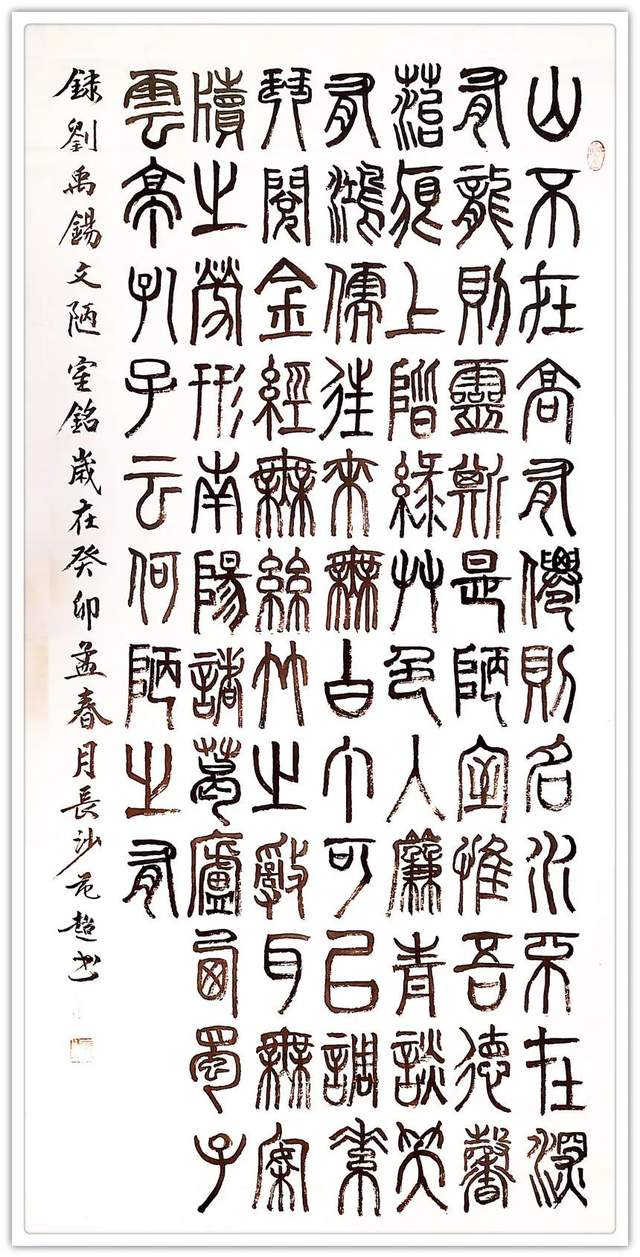 山不在高有僊則名水不在深
有龍則靈斯是陋室惟吾德馨
菭痕上階綠艸色入簾青談笑
有鴻儒往來無白丁可以調素
琴閱金經無絲竹之亂耳無案
牘之勞形南陽諸葛廬西蜀子
雲亭孔子云何陋之有
錄劉禹錫文陋室銘歲在癸卯孟春月長沙范超书